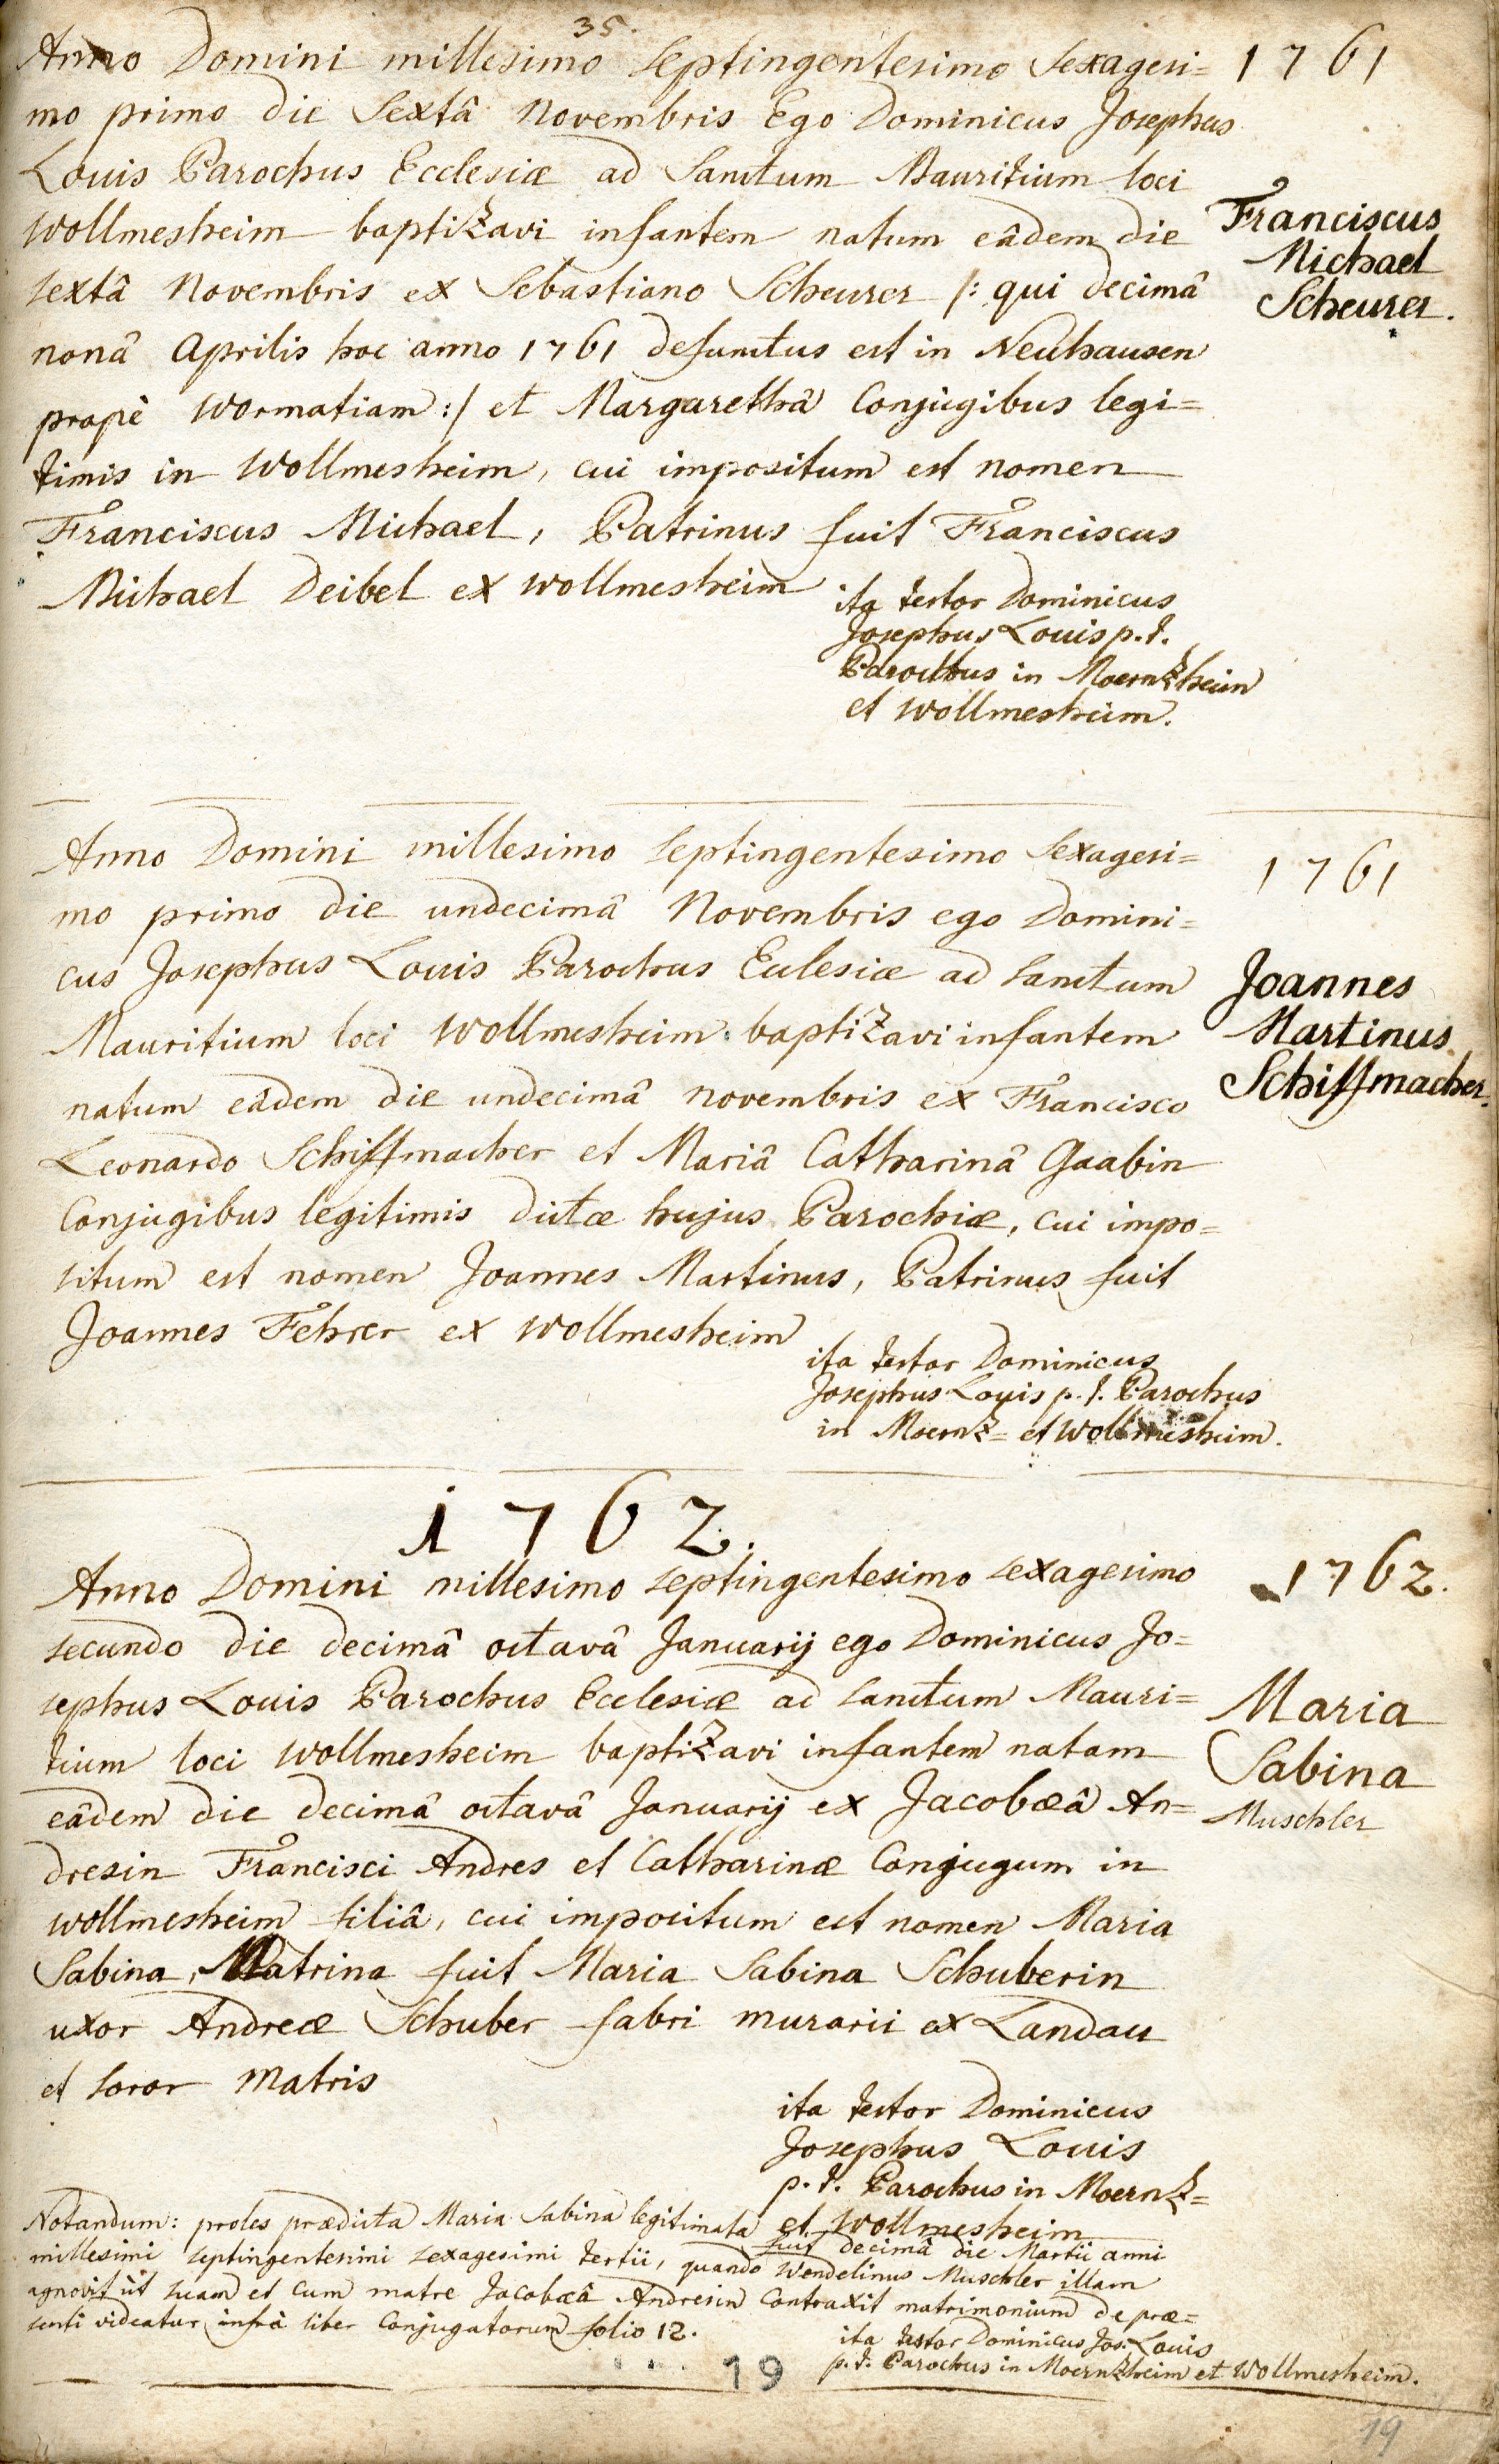 35.
Anno Domini millesimo septingentesimo sexagesi= 1761
mo primo die sextâ Novembris Ego Dominicus Josephus
Louis Parochus Ecclesiæ ad Sanctum Mauritium loci
Wollmesheim baptizavi infantem natum eâdem die
sextâ Novembris ex Sebastiano Scheurer /: qui decimâ
nonâ Aprilis hoc anno 1761 defunctus est in Neuhausen
propè Wormatiam :/ et Margarethâ Conjugibus legi=
timis in Wollmesheim, cui impositum est nomen
Franciscus Michael, Patrinus fuit Franciscus
Michael Deibel ex Wollmesheim
Franciscus
Michael
Scheurer.
ita testor Dominicus
Josephus Louis p.t.
Parochus in Moernzheim
et Wollmesheim.
Anno Domini millesimo septingentesimo sexagesi=
mo primo die undecimâ Novembris ego Domini=
cus Josephus Louis Parochus Ecclesiæ ad sanctum
Mauritium loci Wollmesheim baptizavi infantem
natum eâdem die undecimâ novembris ex Francisco
Leonardo Schiffmacher et Mariâ Catharinâ Gaabin
Conjugibus legitimis dictæ hujus Parochiæ, cui impo=
situm est nomen Joannes Martinus, Patrinus fuit
Joannes Fehrer ex Wollmesheim
1761
Joannes
Martinus
Schiffmacher.
ita testor Dominicus
Josephus Louis p.t. Parochus
in Moernz= et Wollmesheim.
1762.
Anno Domini millesimo septingentesimo sexagesimo
secundo die decimâ octavâ Januarij ego Dominicus Jo=
sephus Louis Parochus Ecclesiæ ad sanctum Mauri=
tium loci Wollmesheim baptizavi infantem natam
eâdem die decimâ octavâ Januarij ex Jacobæâ An=
dresin Francisci Andres et Catharinæ Conjugum in
Wollmesheim filiâ, cui impositum est nomen Maria
Sabina, Matrina fuit Maria Sabina Schuberin
uxor Andreæ Schuber fabri murarii ex Landau
et soror Matris
1762.
Maria
Sabina
Muschler
ita testor Dominicus
Josephus Louis
p.t. Parochus in Moernz=
et Wollmesheim
Notandum: proles prædicta Maria Sabina legitimata fuit decimâ die Martii anni
millesimi septingentesimi sexagesimi tertii, quando Wendelinus Muschler illam
agnovit ut suam et cum matre Jacobæâ Andresin Contraxit matrimonium de præ=
senti videatur infrà liber Conjugatorum folio 12.
ita testor Dominicus Jos. Louis
p.t. Parochus in Moernzheim et Wollmesheim.
19
19